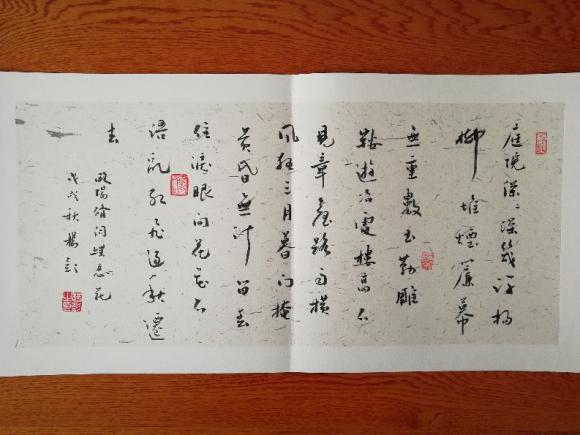 庭院深〻深幾許楊
柳堆煙簾幕
無重數玉勒雕
鞍遊冶處樓高不
見章臺路雨橫
風狂三月暮門掩
黃昏無計留春
住淚眼問花花不
語亂紅飛過鞦韆
去
歐陽脩詞蝶戀花
戊戌秋楊